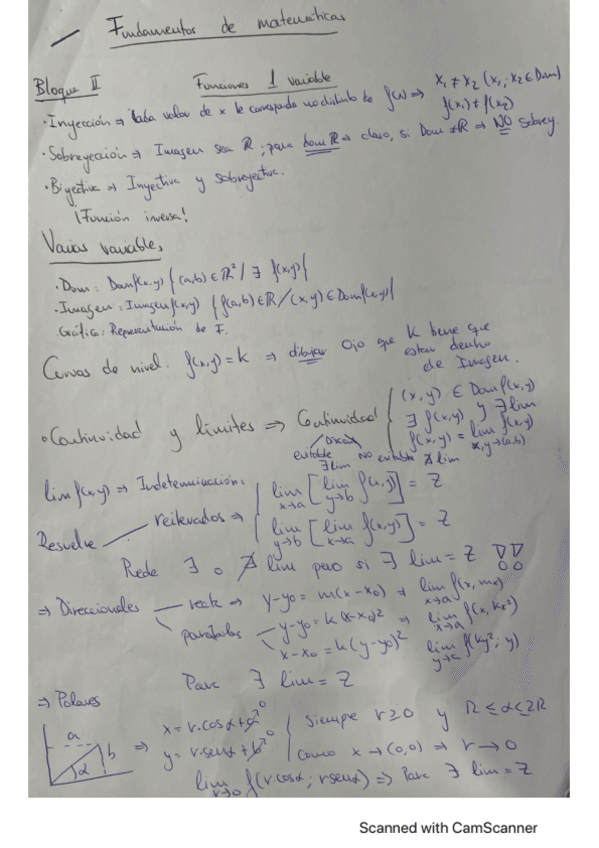 Fundamentos de matemáticas
Bloque II Funciones 1 variable
· Inyección ⇒ Cada valor de x le corresponde uno distinto de f(x) ⇒ x₁ ≠ x₂ (x₁; x₂ ∈ Dom)
f(x₁) ≠ f(x₂)
· Sobreyección ⇒ Imagen sea ℝ; para dom ℝ ⇒ claro, si Dom ≠ ℝ ⇒ NO Sobrey.
· Biyectiva ⇒ Inyectiva y sobreyectiva.
¡Función inversa!
Varias variables
· Dom: Domf(x,y) { (a,b) ∈ ℝ² / ∃ f(x,y) {
· Imagen: Imagenf(x,y) { f(a,b) ∈ ℝ / (x,y) ∈ Domf(x,y) {
· Gráfica: Representación de F.
Curvas de nivel. f(x,y) = K ⇒ dibujar Ojo que K tiene que
estar dentro
de Imagen.
· Continuidad y límites ⇒ Continuidad { (x,y) ∈ Domf(x,y)
∃ f(x,y) y ∃ lim
f(x,y) = lim f(x,y)
x,y→(a,b)
evitable NO evitable ∄ lim
∃ lim
lim f(x,y) ⇒ Indeterminación:
Resuelve reiterados ⇒ { lim x→a [ lim y→b f(x,y) ] = Z
lim y→b [ lim x→a f(x,y) ] = Z
∃ o ∄ lim pero si ∃ lim = Z
⇒ Direccionales recta ⇒ y-y₀ = m(x-x₀) ⇒ lim x→a f(x, mx)
parábolas y-y₀ = k(x-x₀)² ⇒ lim x→a f(x, kx²)
x-x₀ = k(y-y₀)² lim f(ky²; y)
∃ lim = Z
⇒ Polares
a b α ⇒ x = r·cosα + a⁰ { Siempre r ≥ 0 y
y = r·senα + b⁰ Como x → (0,0) ⇒ r → 0
lim r→0 f(r cosα; r senα) ⇒ ∃ lim = Z
Scanned with CamScanner